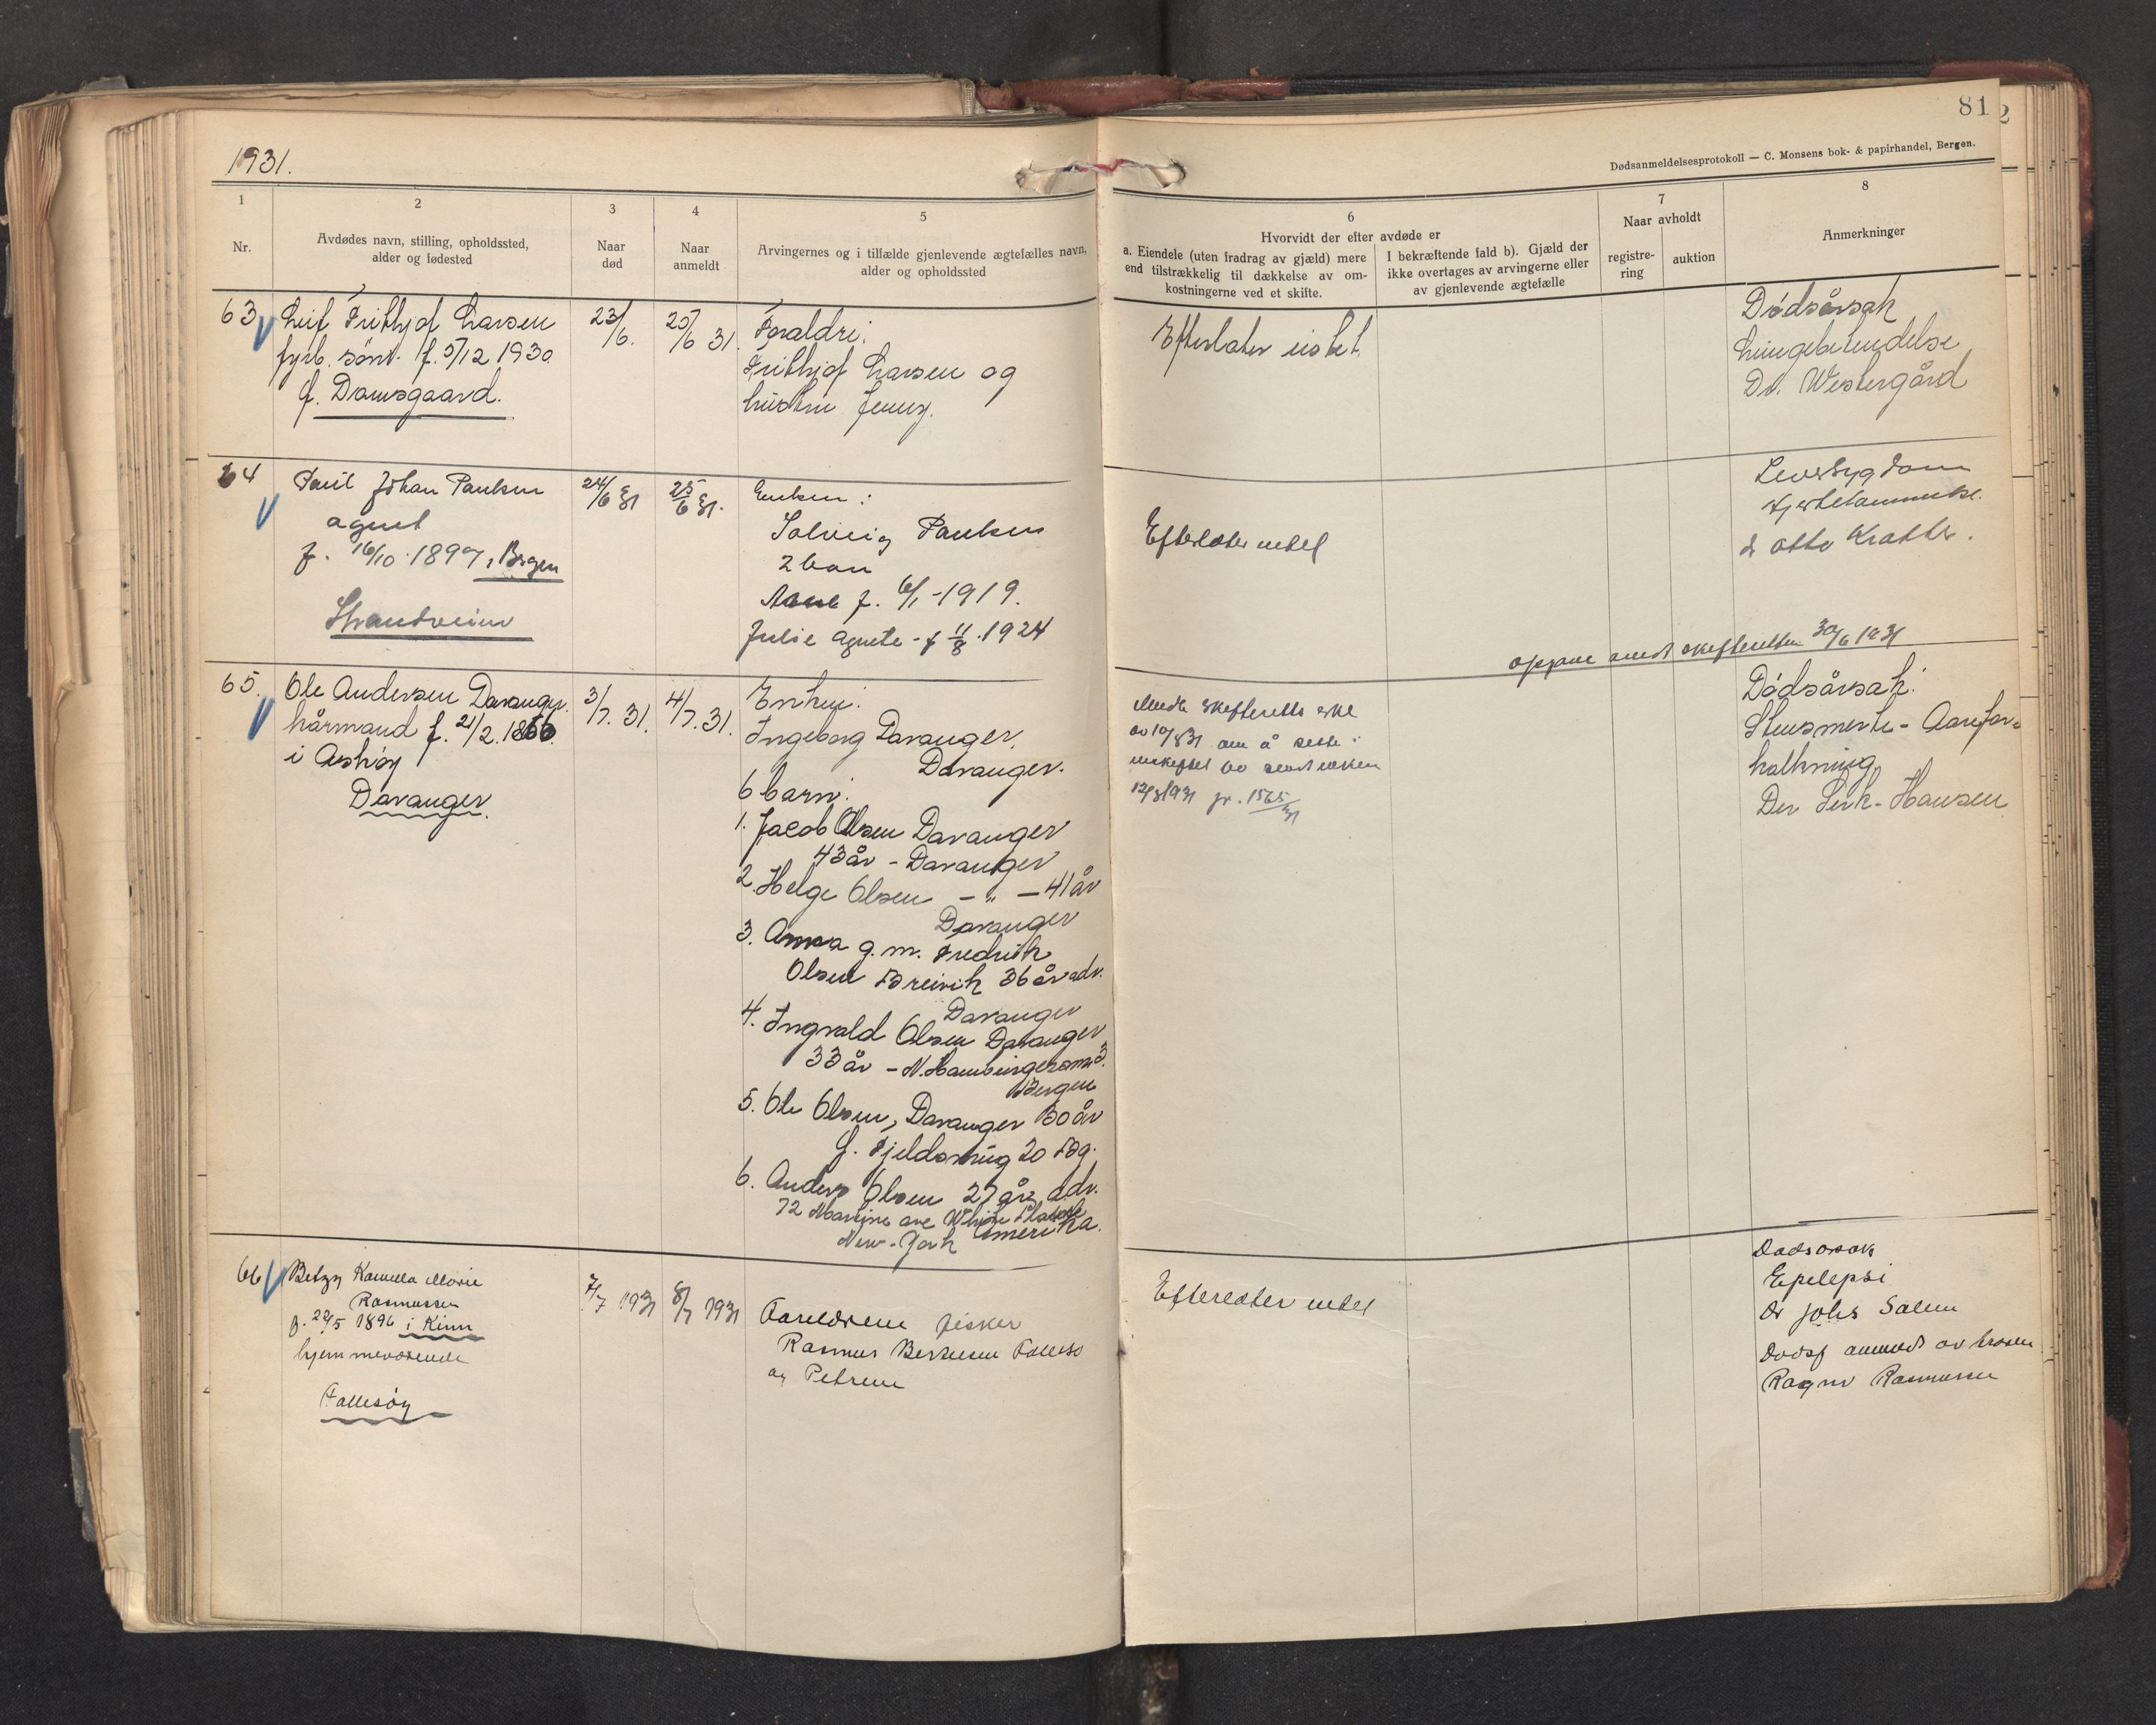 1931.
81
2
Dødsanmeldelsesprotokoll — C. Monsens bok- & papirhandel, Bergen.
1
Nr.
2
Avdødes navn, stilling, opholdssted,
alder og fødested
3
Naar
død
4
Naar
anmeldt
5
Arvingernes og i tilfælde gjenlevende ægtefælles navn,
alder og opholdssted
6
Hvorvidt der efter avdøde er
a. Eiendele (uten fradrag av gjæld) mere
end tilstrækkelig til dækkelse av om-
kostningerne ved et skifte.
I bekræftende fald b). Gjæld der
ikke overtages av arvingerne eller
av gjenlevende ægtefælle
7
Naar avholdt
registre-
ring
auktion
8
Anmerkninger
63
Leif Frithjof Larsen
fyrb. sönn. f. 5/12 1930
Damsgaard.
23/6.
25/6 31.
Foreldre:
Frithjof Larsen og
hustru Jenny.
Efterlater intet
Dödsårsak
Lungebetendelse
Dr. Westergård
64
Paul Johan Paulsen
agent
f. 16/10 1897, Bergen
Strandveien
24/6 31
25/6 31.
Enken:
Solveig Paulsen
2 barn
f. 6/1 - 1919.
Julie Agnete - f 11/8 1924
Efterlater intet
Leversygdom
Hjertelammelse.
dr Otto
Opgave sendt skifteretten 30/6 1931
65.
Ole Andersen Davanger.
kårmand f. 21/2. 1856.
i Askøy
Davanger.
3/7. 31.
4/7. 31.
Enke:
Ingeborg Davanger,
Davanger.
6 barn:
1. Jacob Olsen Davanger
43 år - Davanger
2. Helge Olsen - „ - 41 år
Davanger
3. Anna g. m. Fredrik
Olsen Breivik 36 år adr.
Davanger
4. Ingvald Olsen Davanger
33 år - N. Hamburgersm 3.
Bergen
5. Ole Olsen, Davanger 30 år
Fjeldsmug 20 Bg.
6. Anders Olsen 27 år, adr.
72 Martine ave White Plains
New-York Amerika.
skifteretts
av 10/8 31 om å sitte i
uskiftet bo sendt enken
12/8 1931 jr. 1565/31
Dödsårsak:
Stensmerte - Aarefor-
kalkning,
Hansen
66
Betzy Kamilla Marie
Rasmussen
f. 22/5 1896 i Kinn
hjemmeværende
Follesøy
7/7 1931
8/7 1931
Foreldrene fisker
Rasmus Follesø
og Petrine
Efterlater intet
Dødsårsak
Epilepsi
dr Johs Salem
Dødsf anmeldt av broren
Ragnv Rasmussen